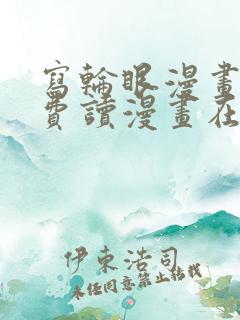 寫輪眼漫畫
費讀漫畫在
伊東浩司
未任同意禁止結城